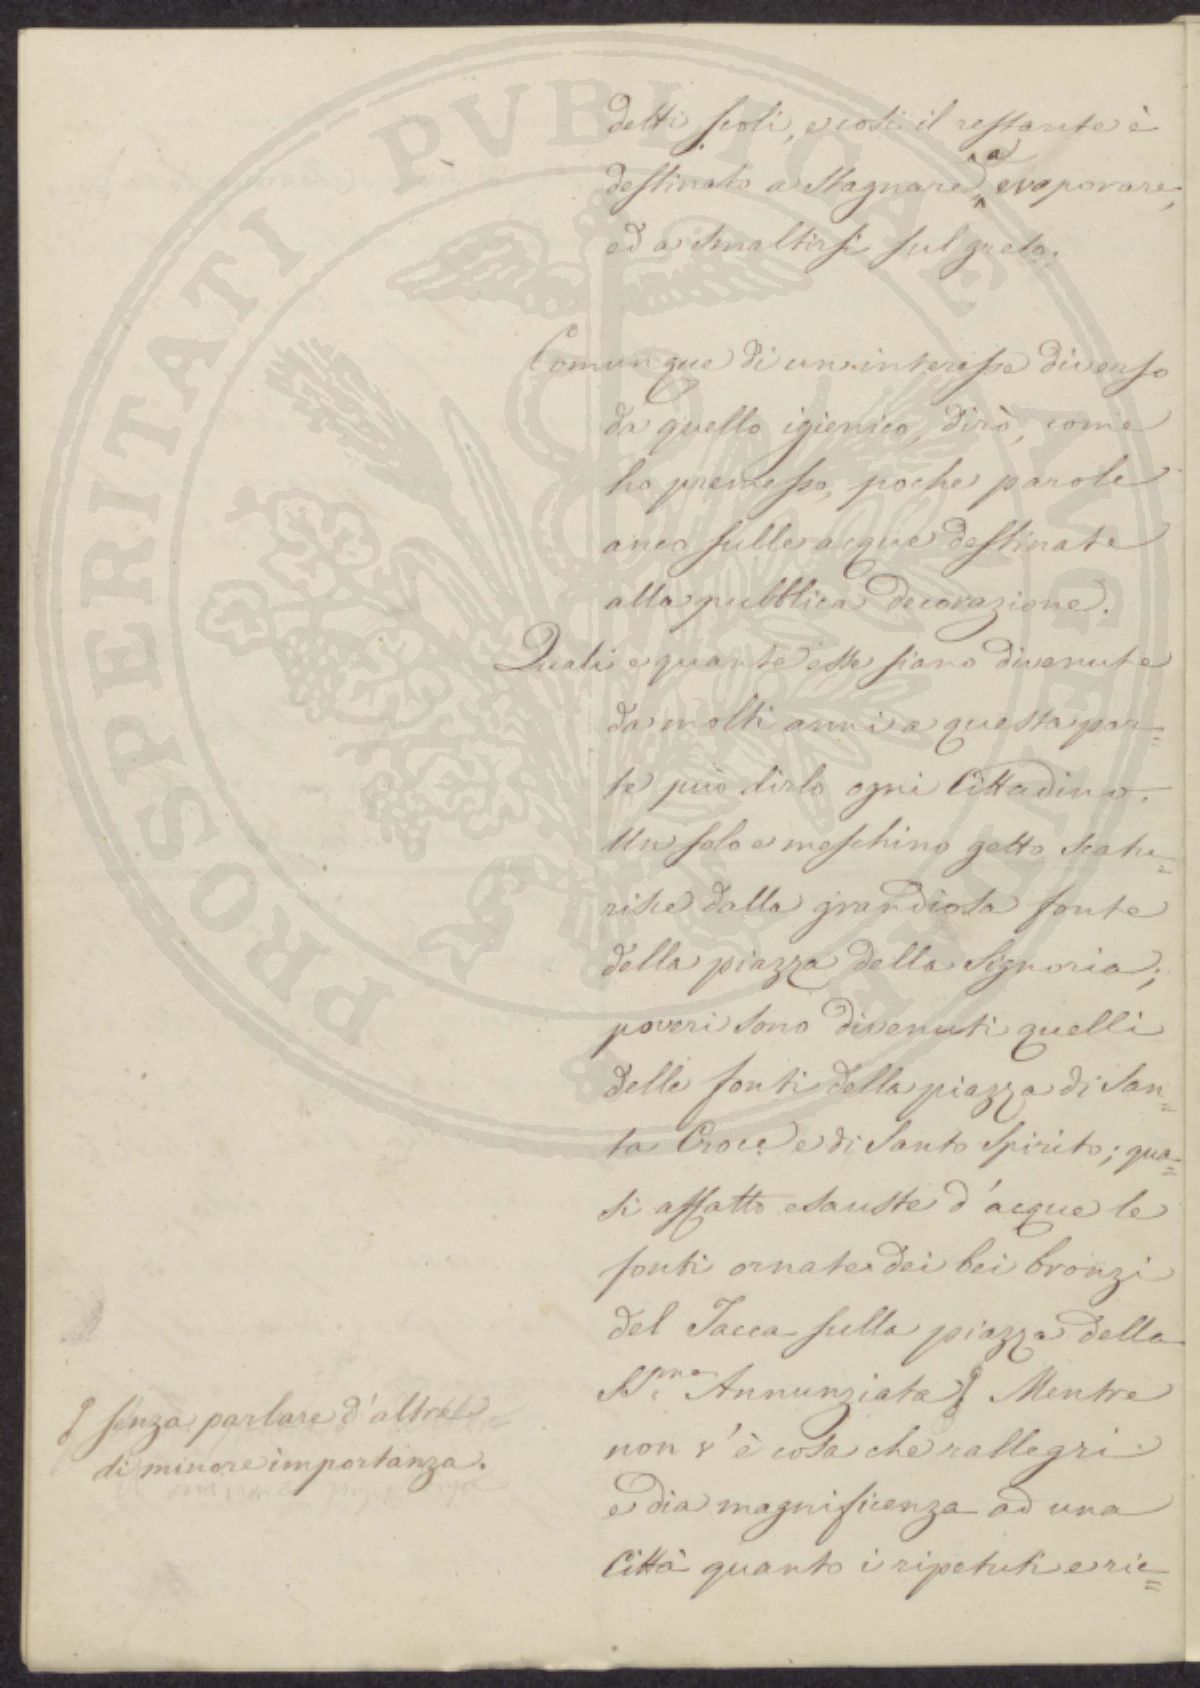 detti scoli, e così il restante è
a
destinato a stagnare, evaporare,
ed a smaltirsi sul greto.
Comunque di un interesse diverso
da quello igienico, dirò, come
ho premesso, poche parole
anco sulle acque destinate
alla pubblica decorazione.
Quali e quante esse siano divenute
da molti anni a questa par=
te può dirlo ogni Cittadino.
Un solo e meschino getto scatu=
risce dalla grandiosa fonte
della piazza della Signoria;
poveri sono divenuti quelli
delle fonti della piazza di San=
ta Croce e di Santo Spirito; qua=
si affatto esauste d'acque le
fonti ornate dei bei bronzi
del Tacca sulla piazza della
SS.ma Annunziata Mentre
senza parlare d'altre
di minore importanza.
non v'è cosa che rallegri
e dia magnificenza ad una
Città quanto i ripetuti e ric=
PROSPERITATI PVBLICAE AVGENDAE